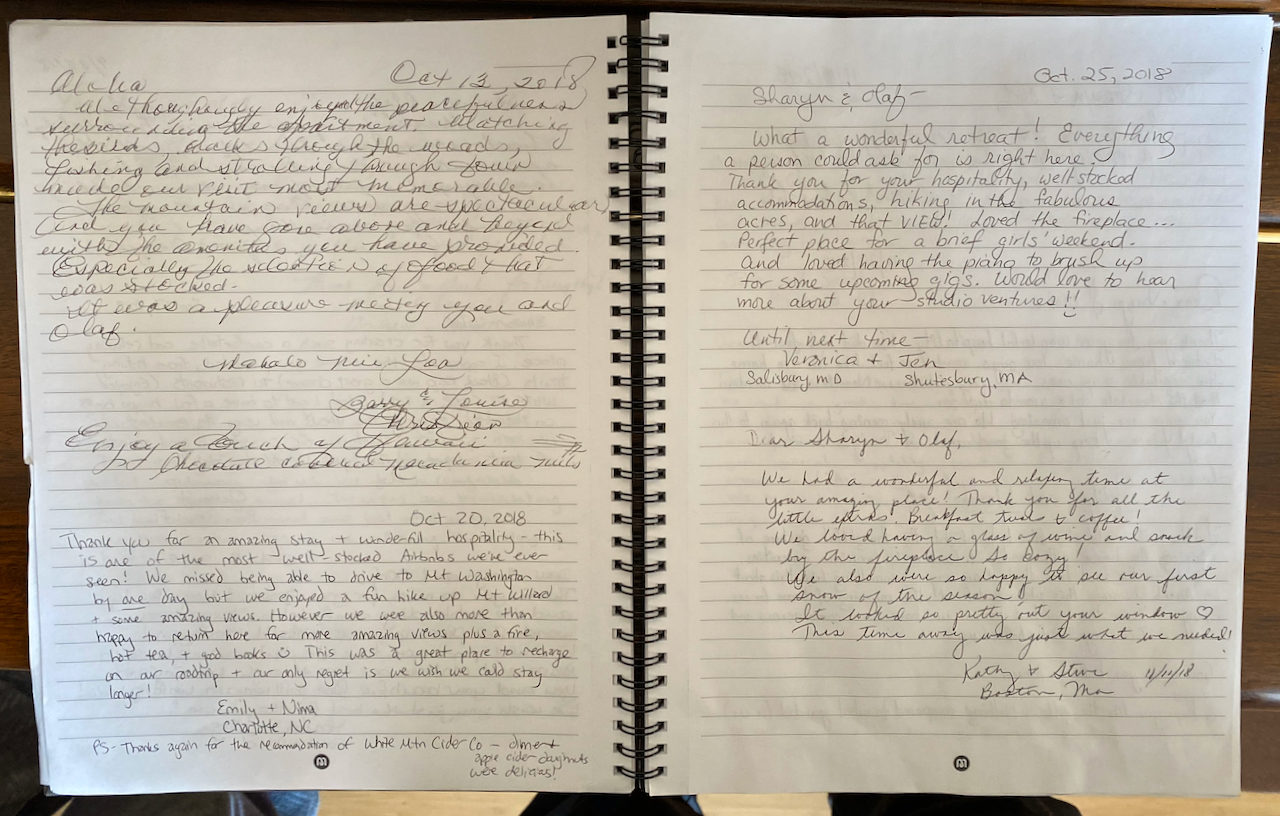 Oct 13, 2018
Aloha
We thoughougly enjoyed the peacefulness
surrounding the apartment. Watching
the birds, walks through the woods,
fishing and strolling through town
made our visit most memorable.
The mountain views are spectacular,
and you have gone above and beyond
with the amenities you have provided.
Especially the selection of food that
was stocked.
It was a pleasure meeting you and
Olaf.
Mahalo Nui Loa
Barry & Louise
Enjoy a Touch of Hawaii
Chocolate covered macadamia nuts
Oct 20, 2018
Thank you for an amazing stay + wonderful hospitality - this
is one of the most well-stocked Airbnbs we've ever
seen! We missed being able to drive to Mt Washington
by one day but we enjoyed a fun hike up Mt Willard
+ some amazing views. However we were also more than
happy to return here for more amazing views plus a fire,
hot tea, + good books ☺ This was a great place to recharge
on our roadtrip + our only regret is we wish we could stay
longer!
Emily + Nima
Charlotte, NC
PS - Thanks again for the recommendation of White Mtn Cider Co - dinner +
apple cider doughnuts
were delicious!
Oct. 25, 2018
Sharyn & Olaf -
What a wonderful retreat! Everything
a person could ask for is right here!
Thank you for your hospitality, well-stocked
accommodations, hiking in the fabulous
acres, and that VIEW! Loved the fireplace...
Perfect place for a brief girls' weekend.
And loved having the piano to brush up
for some upcoming gigs. Would love to hear
more about your studio ventures!!
Until next time -
Veronica + Jen
Salisbury, MD Shutesbury, MA
Dear Sharyn + Olaf,
We had a wonderful and relaxing time at
your amazing place! Thank you for all the
little extras! Breakfast treats & coffee!
We loved having a glass of wine and snack
by the fireplace. So cozy!
We also were so happy to see our first
snow of the season!
It looked so pretty out your window ♡
This time away was just what we needed!
Kathy & Steve
Boston, Ma